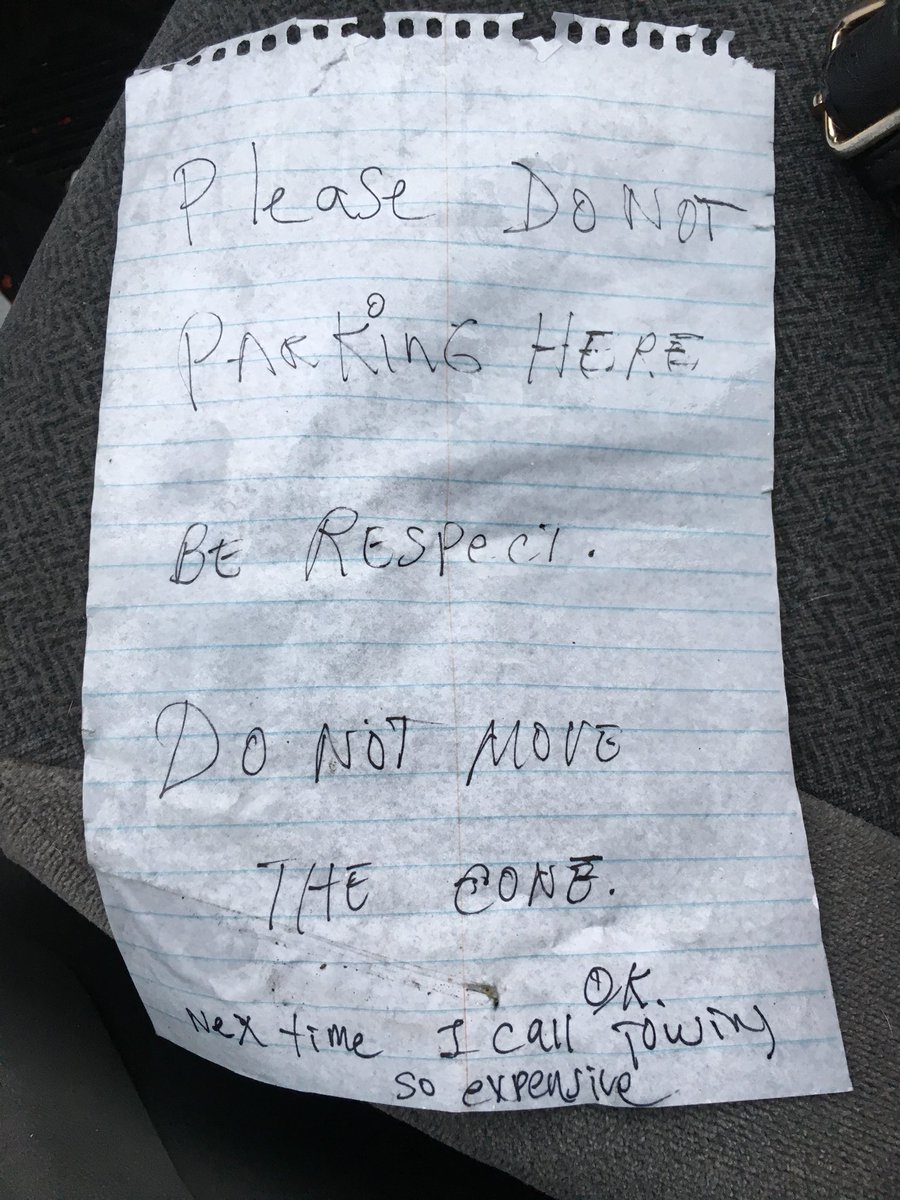 Please DO NOT
PARKING HERE
BE RESPECT.
DO NOT MOVE
THE CONE.
OK.
Nex time I call Towing
so expensive